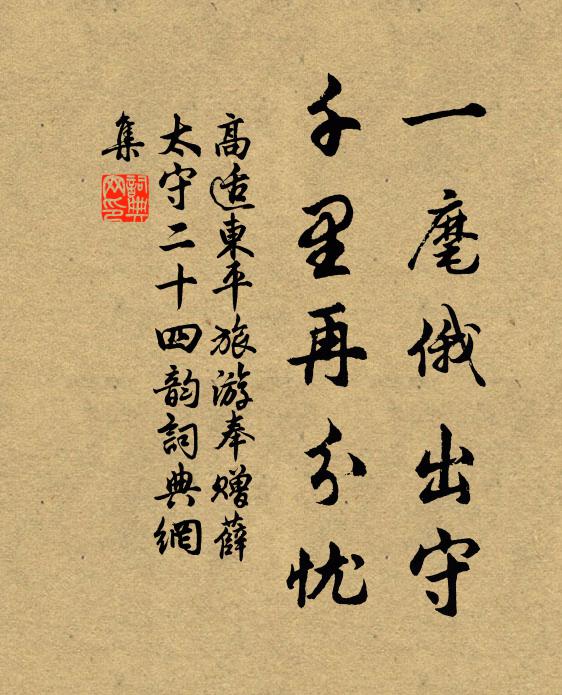 一麾俄出守
千里再分忧
高适東平旅游奉赠薛
太守二十四韵詞典網
集
詞典
网印